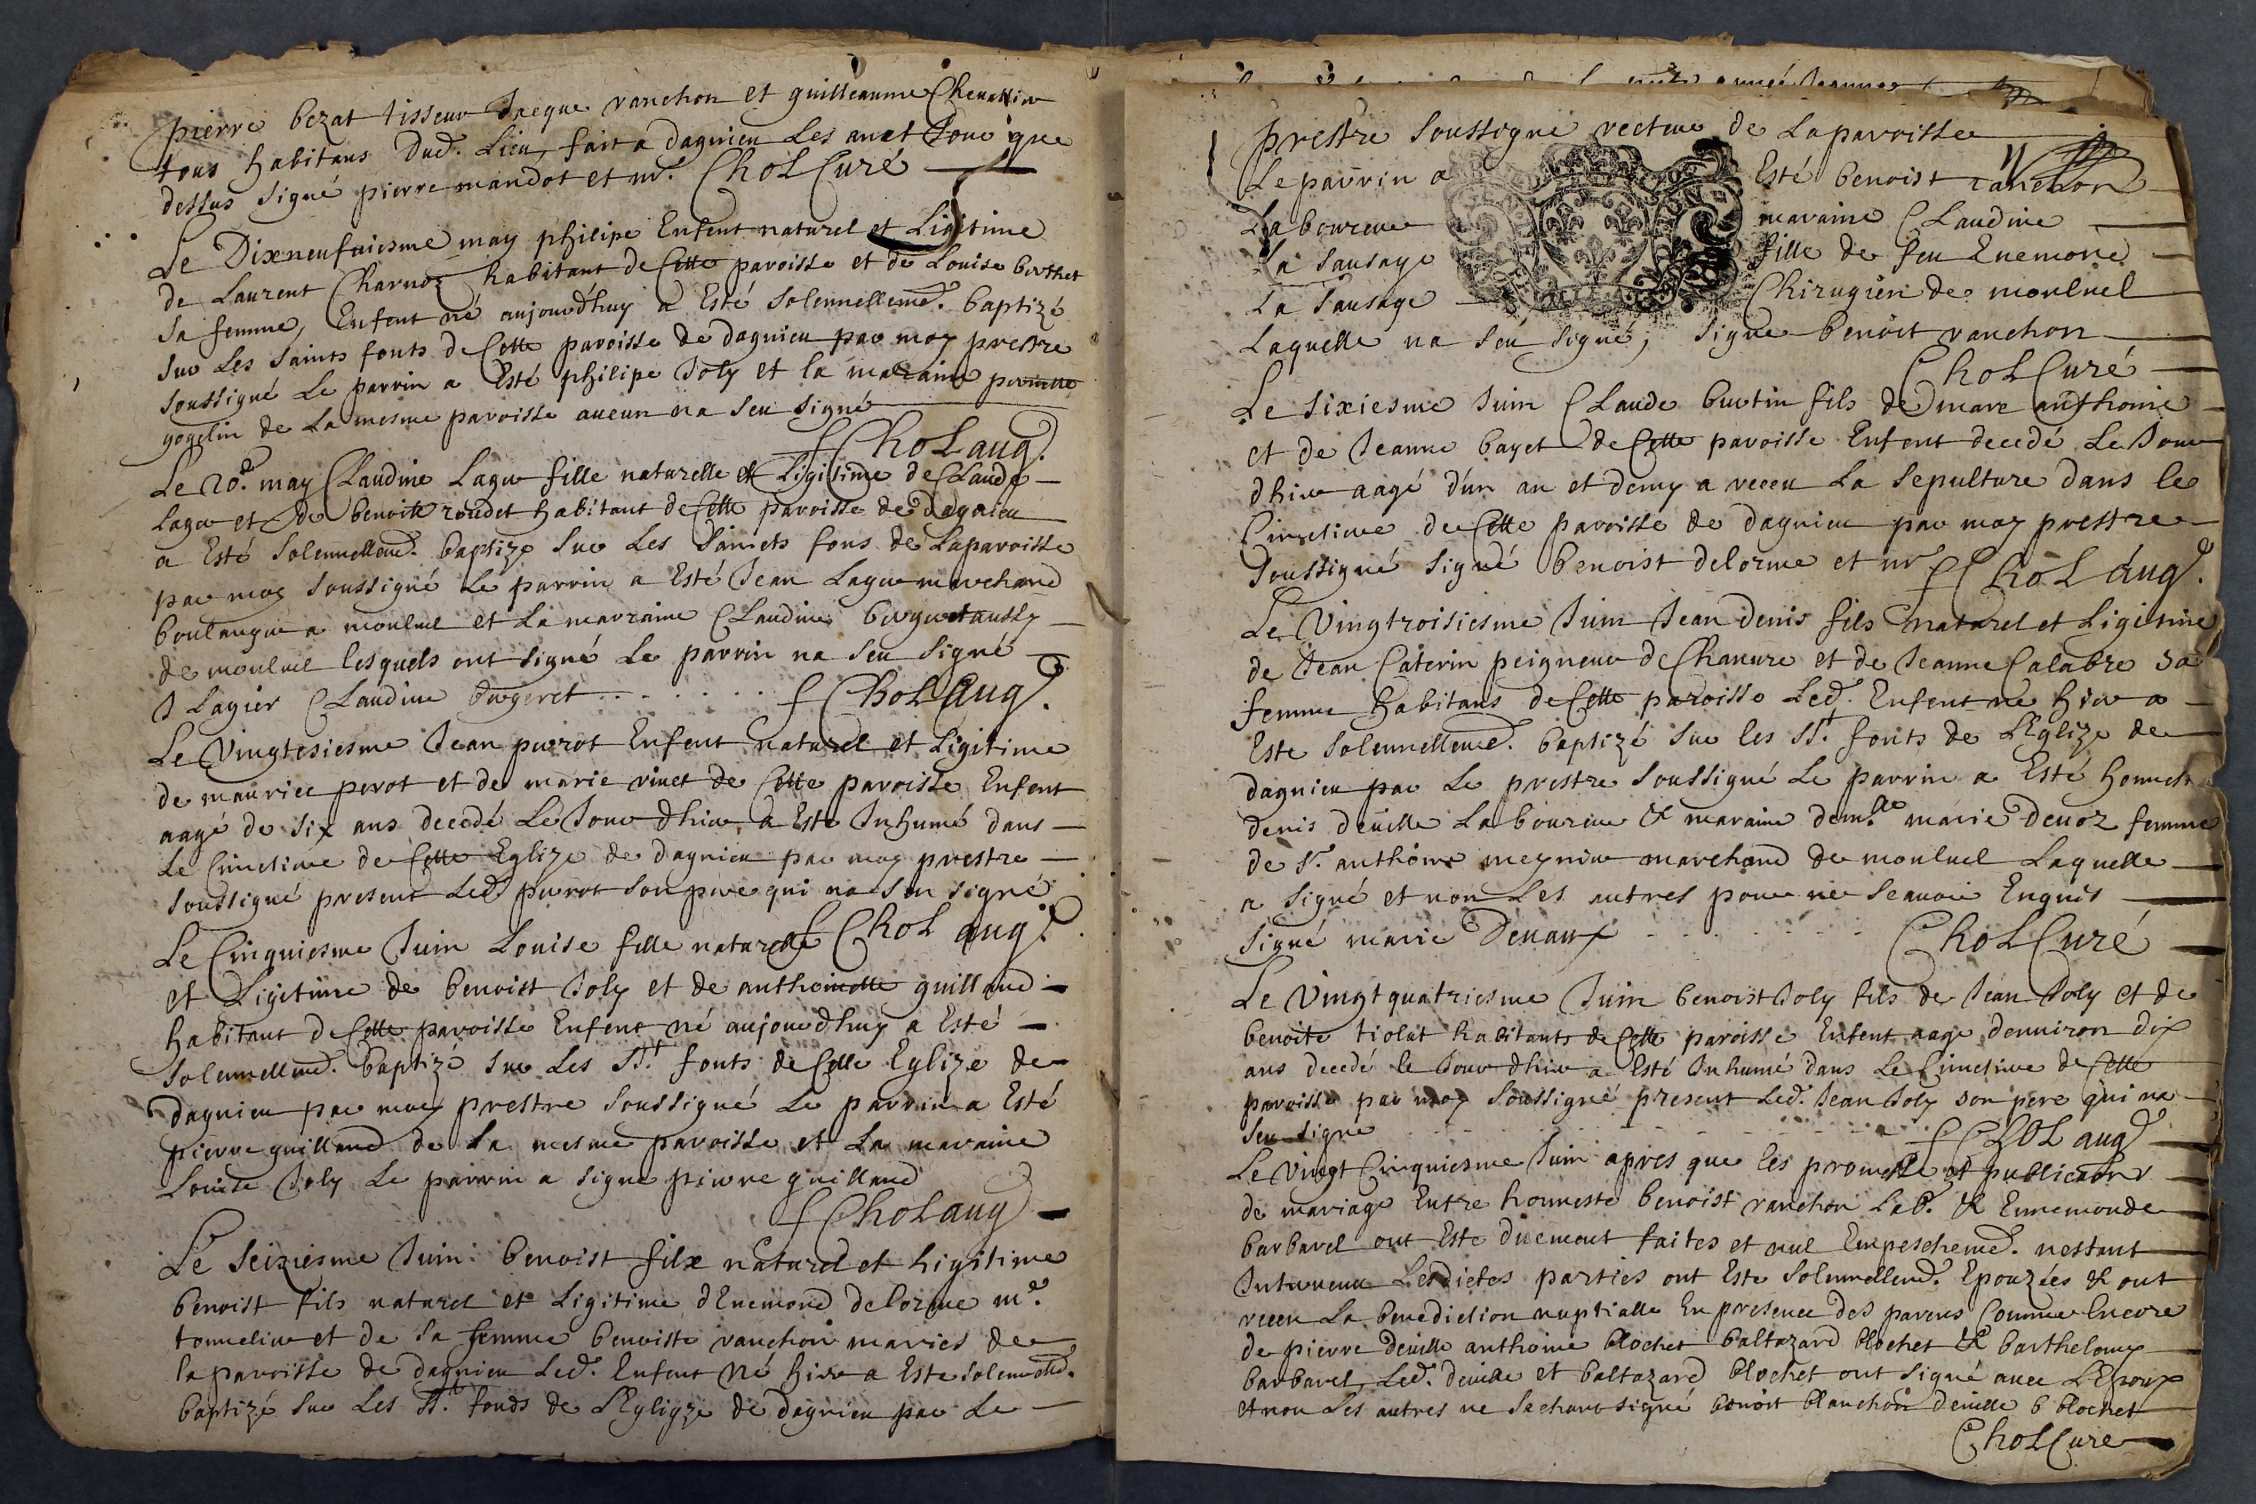 pierre bezat tisseur Jacque ranchon et guilleaume Chevallier
tous habitans Dud. Lieu, fait a dagnieu Les an et Jour que
dessus signé pierre mandot et m. Chol Curé
Le Dixneufuiesme may philipe Enfent naturel et Ligitime
de Laurent Charnoz habitant de Cette paroisse et de Louise berthet
sa femme, Enfent né aujourdhuy a Esté solennellemt. baptizé
sur Les saints fonts de Cette paroisse de dagnieu par moy prestre
soussigné Le parrin a Esté philipe Joly et la maraine pernette
gogelin de La mesme paroisse aucun na seu signé
Chol aug.
Le 20e. may Claudine Lager fille naturelle et Ligitime de Claude
Lager et de benoite roudet habitant de Cette paroisse de dagnieu
a Esté solennellemt. baptize sur Les saincts fons de La paroisse
par moy soussigné Le parrin a Esté Jean Lager marchand
boulanger a monluel et La marraine Claudine bergeret aussy
de monluel lesquels ont signé Le parrin na seu signé
J Lagier Claudine bergeret
Chol aug.
Le Vingtesiesme Jean perrot Enfent naturel et Ligitime
de maurice perot et de marie vinet de Cette paroisse Enfent
aagé de six ans decedé Le Jour dhier a Esté Inhumé dans
Le Cimetiere de Cette Eglize de dagnieu par moy prestre
soussigné present Led. perrot son pere qui na seu signé
Chol aug.
Le Cinquiesme Juin Louise fille naturelle
et Ligitime de benoist Joly et de anthoinette guilland
habitant de Cette paroisse Enfent né aujourdhuy a Esté
solennellemt. baptizé sur Les Sts. fonts de Cette Eglize de
dagnieu par moy prestre soussigné Le parrin a Esté
pierre guilland de La mesme paroisse et La maraine
Louise Joly Le parrin a signé pierre guilland
Chol aug
Le seiziesme Juin benoist fils naturel et Ligitime
benoist fils naturel et Ligitime dEnemond delorme me.
tonnelier et de sa femme benoiste ranchon mariés de
la paroisse de dagnieu Led. Enfent Né hier a Este solennellemt.
baptizé sur Les Sts. fonds de l'Eglize de dagnieu par Le
prestre soussigné recteur de La paroisse
Le parrin a Esté benoist ranchon
Laboureur maraine Claudine
La sausage fille de feu Enemond
La sausage Chirugien de monluel
Laquelle na seu signé, signé benoit ranchon
Chol Curé
Le sixiesme Juin Claude burtin fils de marc anthoine
et de Jeanne bayet de Cette paroisse Enfent decedé Le Jour
dhier aagé d'un an et demy a receu La sepulture dans le
Cimetiere de Cette paroisse de dagnieu par moy prestre
soussigné signé benoist delorme et m
Chol aug.
Le Vingtroisiesme Juin Jean denis fils naturel et Ligitime
de Jean Caterin peigneur de Chanure et de Jeanne Calabre sa
femme habitans de Cette paroisse Led. Enfent né hier a
Este solennellemt. baptizé sur les Sts. fonts de L'Eglize de
dagnieu par Le prestre soussigné Le parrin a Esté honneste
denis deville Laboureur & maraine demlle. marie devoz femme
de Sr. anthoine meynier marchand de monluel Laquelle
a signé et non Les autres pour ne scauoir Enquis
signé marie Devaux
Chol Curé
Le Vingt quatriesme Juin benoist Joly fils de Jean Joly et de
benoite tiolat habitants de Cette paroisse Enfent aagé denuiron dix
ans decedé le Jour dhier a Esté Inhumé dans Le Cimetiere de Cette
paroisse par moy soussigné present Led. Jean Joly son pere qui na
seu signé
Chol aug
Le Vingt Cinquiesme Juin apres que les promesse et publications
de mariage Entre honneste benoist ranchon Lab. & Ennemonde
barbarel ont Este duement faites et nul Empeschemt. nestant
Interuenu Lesdictes parties ont Este solennellemt. Epouzées & ont
receu La benediction nuptialle En presence des parens Comme Encore
de pierre deville anthoine blochet baltazard blochet & barthelemy
barbarel, Led. deville et baltazard blochet ont signé auec L'Epoux
et non Les autres ne sachant signé benoit blanchon deville b blochet
Chol Cure